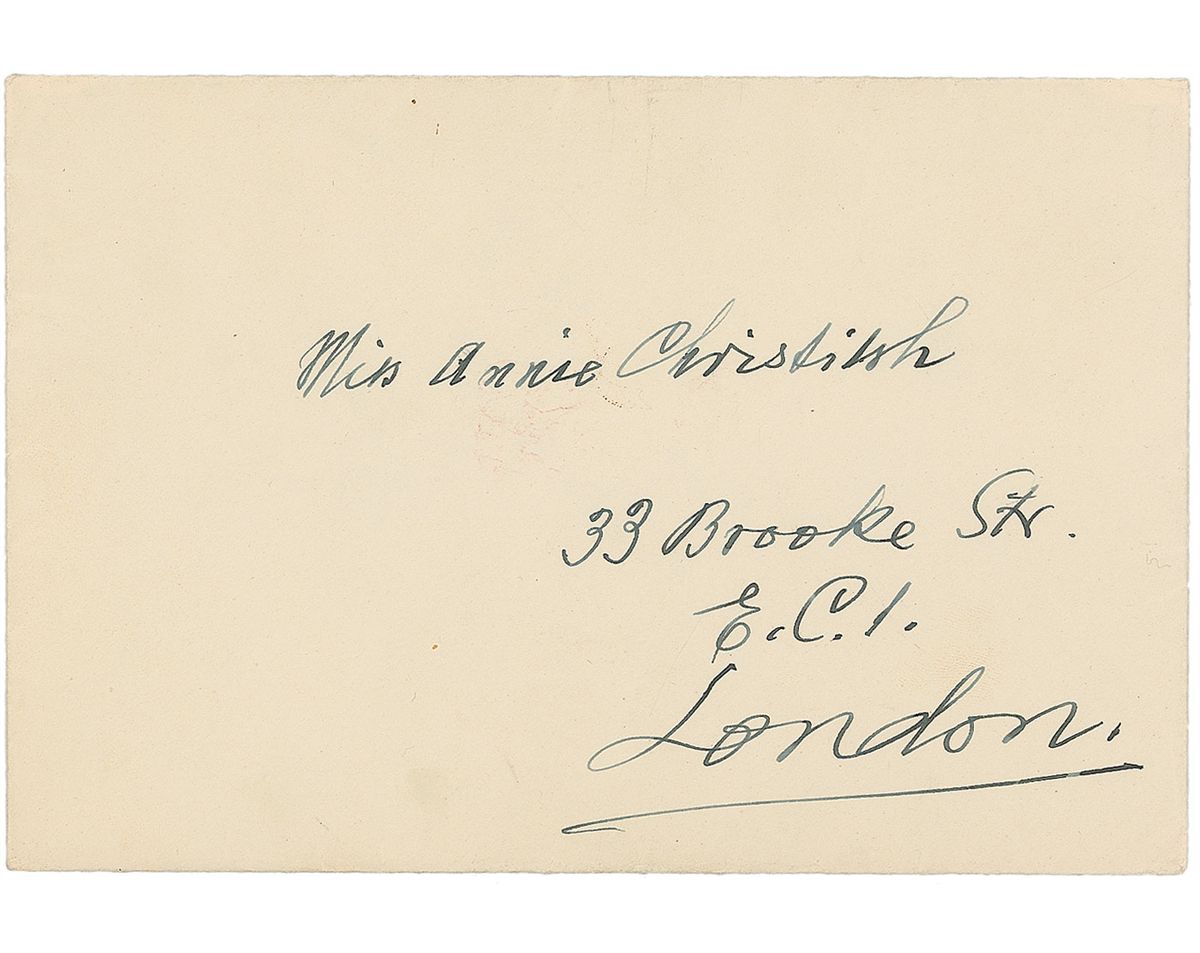 Miss Annie Christitch
33 Brooke Str.
E.C.1.
London.